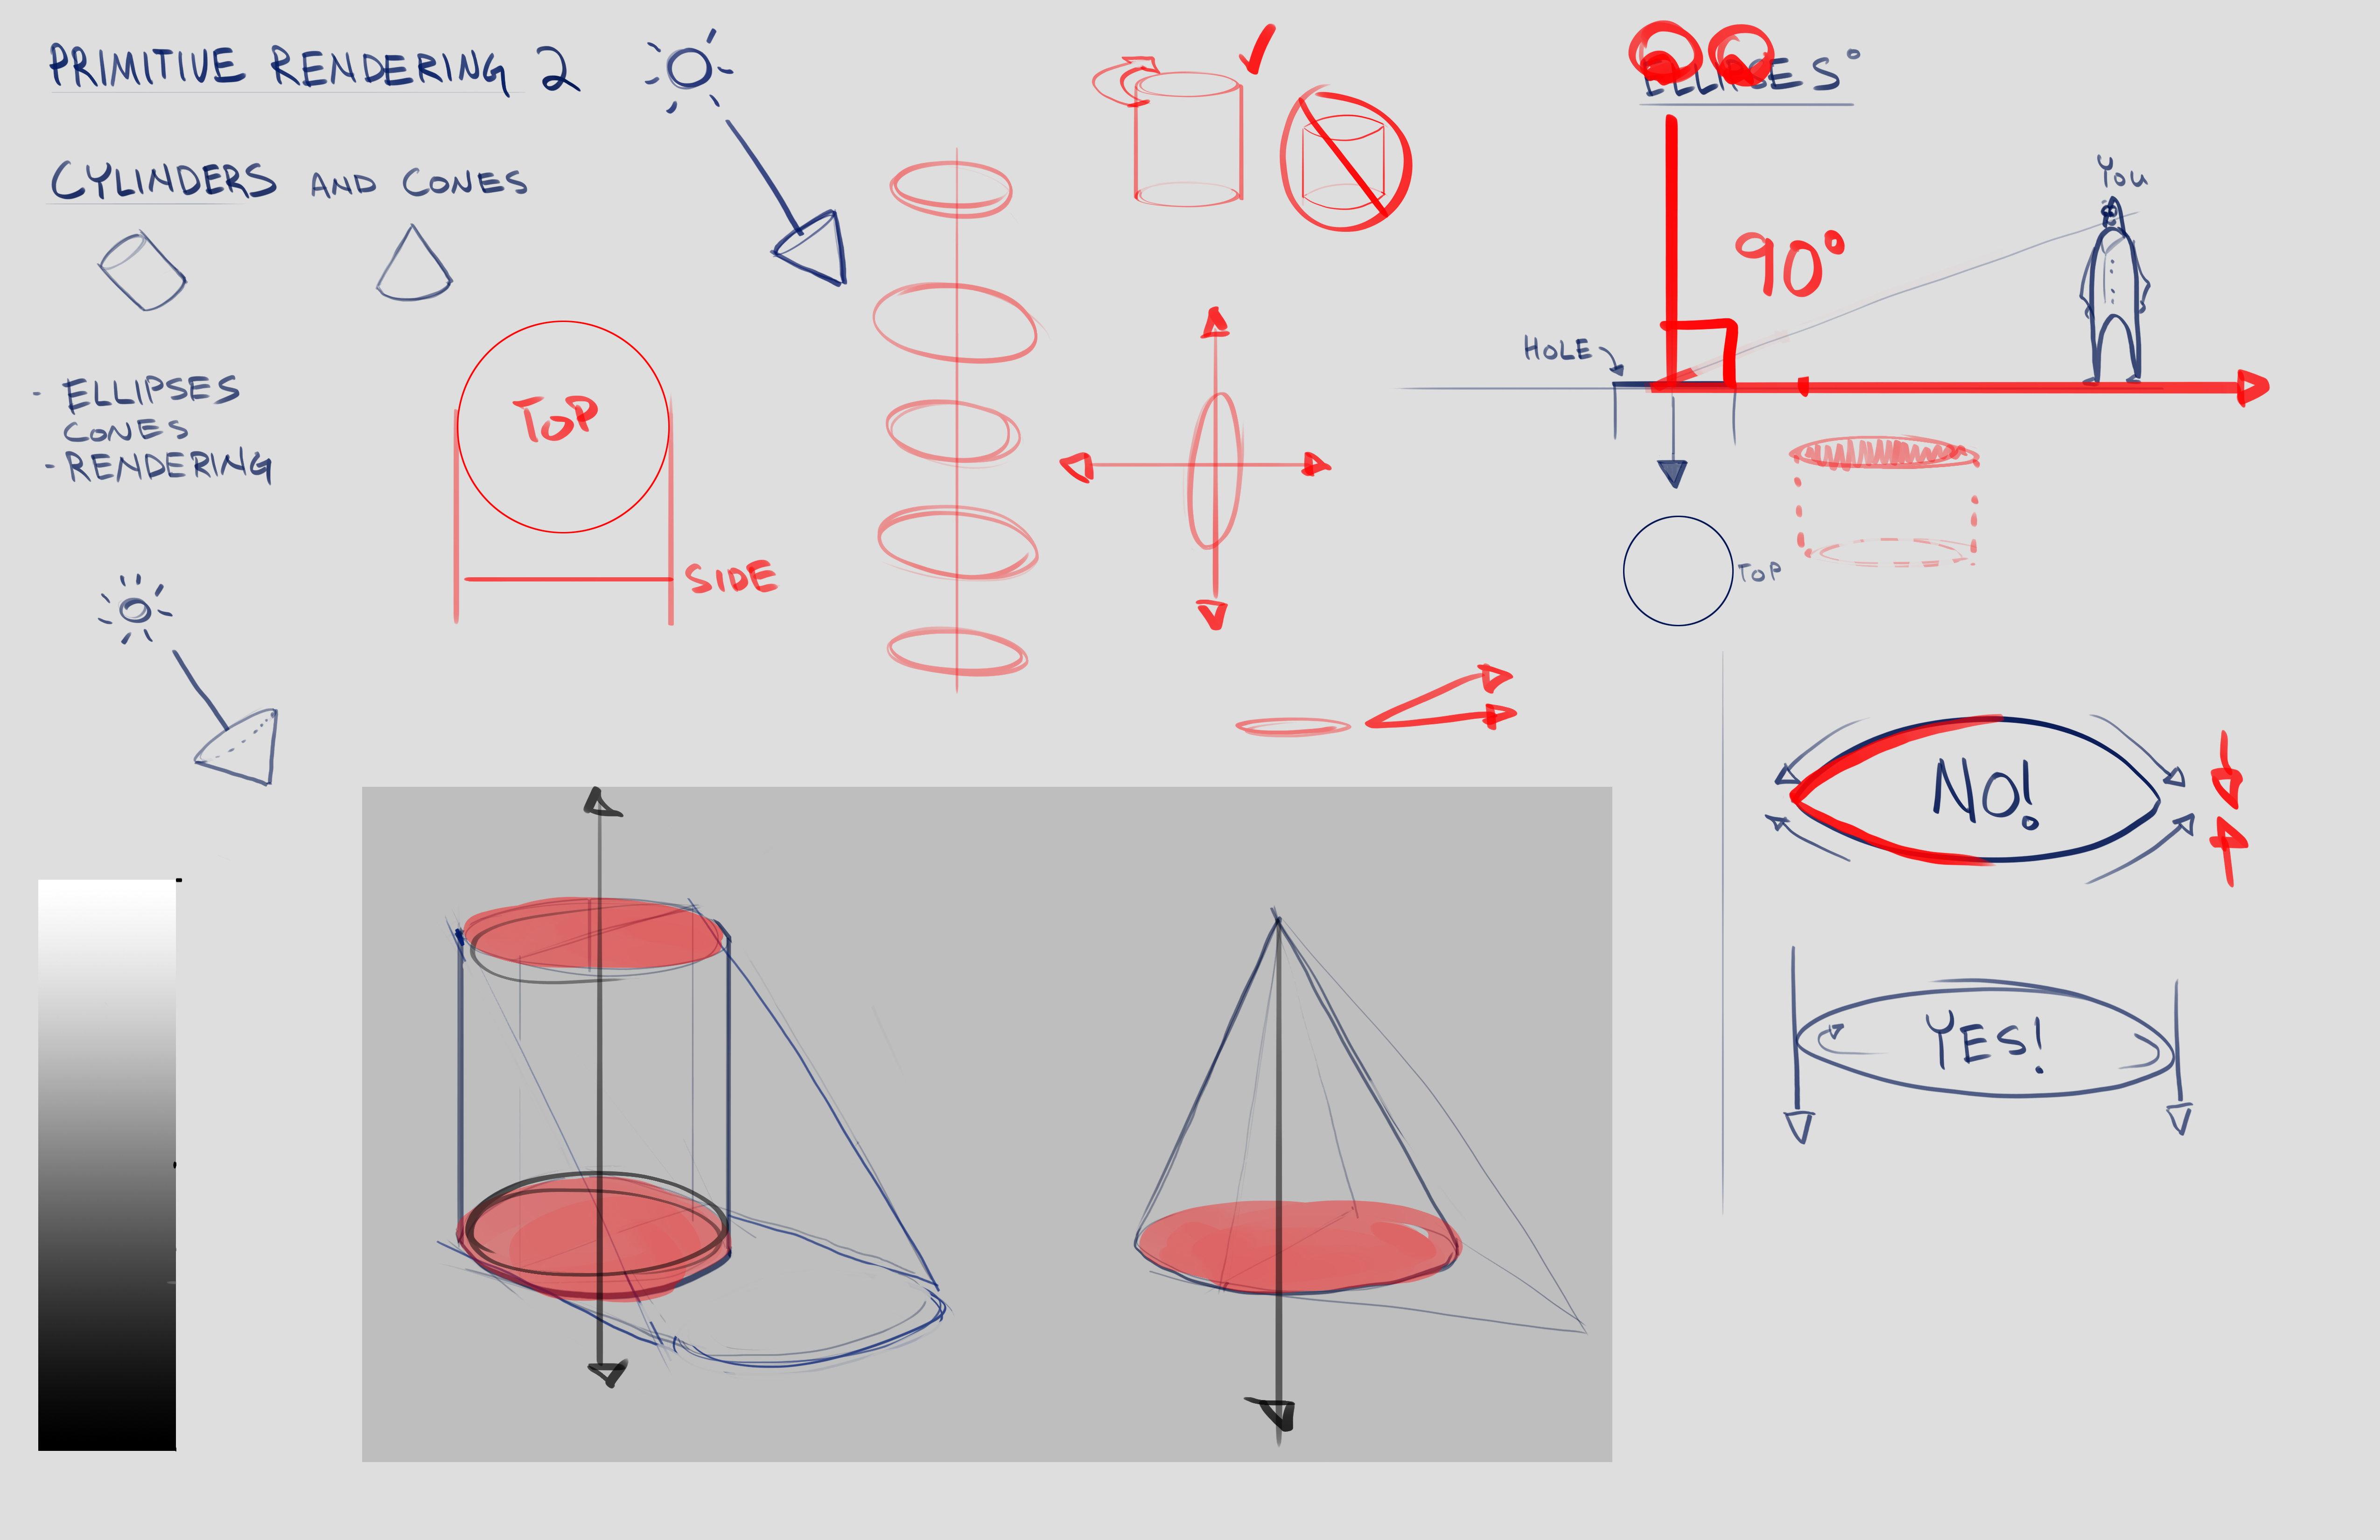 PRIMITIVE RENDERING 2
CYLINDERS AND CONES
- ELLIPSES
CONES
- RENDERING
TOP
SIDE
ELLIPSES
YOU
90°
HOLE
TOP
NO!
YES!